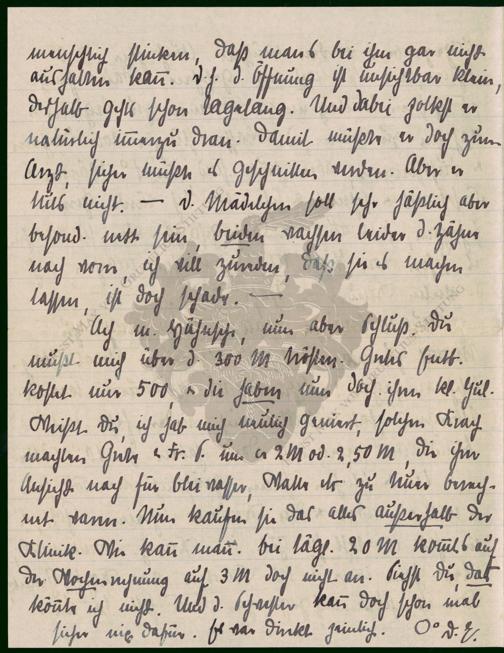 menschlich stinken, daß man's bei ihm gar nicht
aushalten kann. D.h. d. Öffnung ist unsichtbar klein,
deshalb geht's schon tagelang. Und dabei zolkst er
natürlich immerzu dran. Damit müßte er doch zum
Arzt, sicher müßte es geschnitten werden. Aber er
tut's nicht. — D. Mädelchen soll sehr häßlich aber
besond. nett sein, beiden wachsen leider d. Zähne
nach vorn, ich will zureden, daß sie es machen
lassen, ist doch schade. —
Ach m. Hühnsche, nun aber Schluß. Du
mußt mich über d. 300 M trösten. Gretes Entb.
kostet nur 500, u. die haben nun doch ihren kl. Jul.
Weißt Du, ich hab mich neulich geniert, solchen Krach
machten Grete u. Fr. P. um u. 2 M od. 2,50 M, die ihrer
Ansicht nach für Bleiwasser, Watte etc zu teuer berech-
net waren. Nun kaufen sie das alles außerhalb der
Klinik. Wie kann man. bei tägl. 20 M kommt's auf
der Wochenrechnung auf 3 M doch nicht an. Siehst Du, das
könnte ich nicht. Und d. Schwester kann doch schon mal
sicher nix dafür. Es war direkt peinlich. O° D. E.